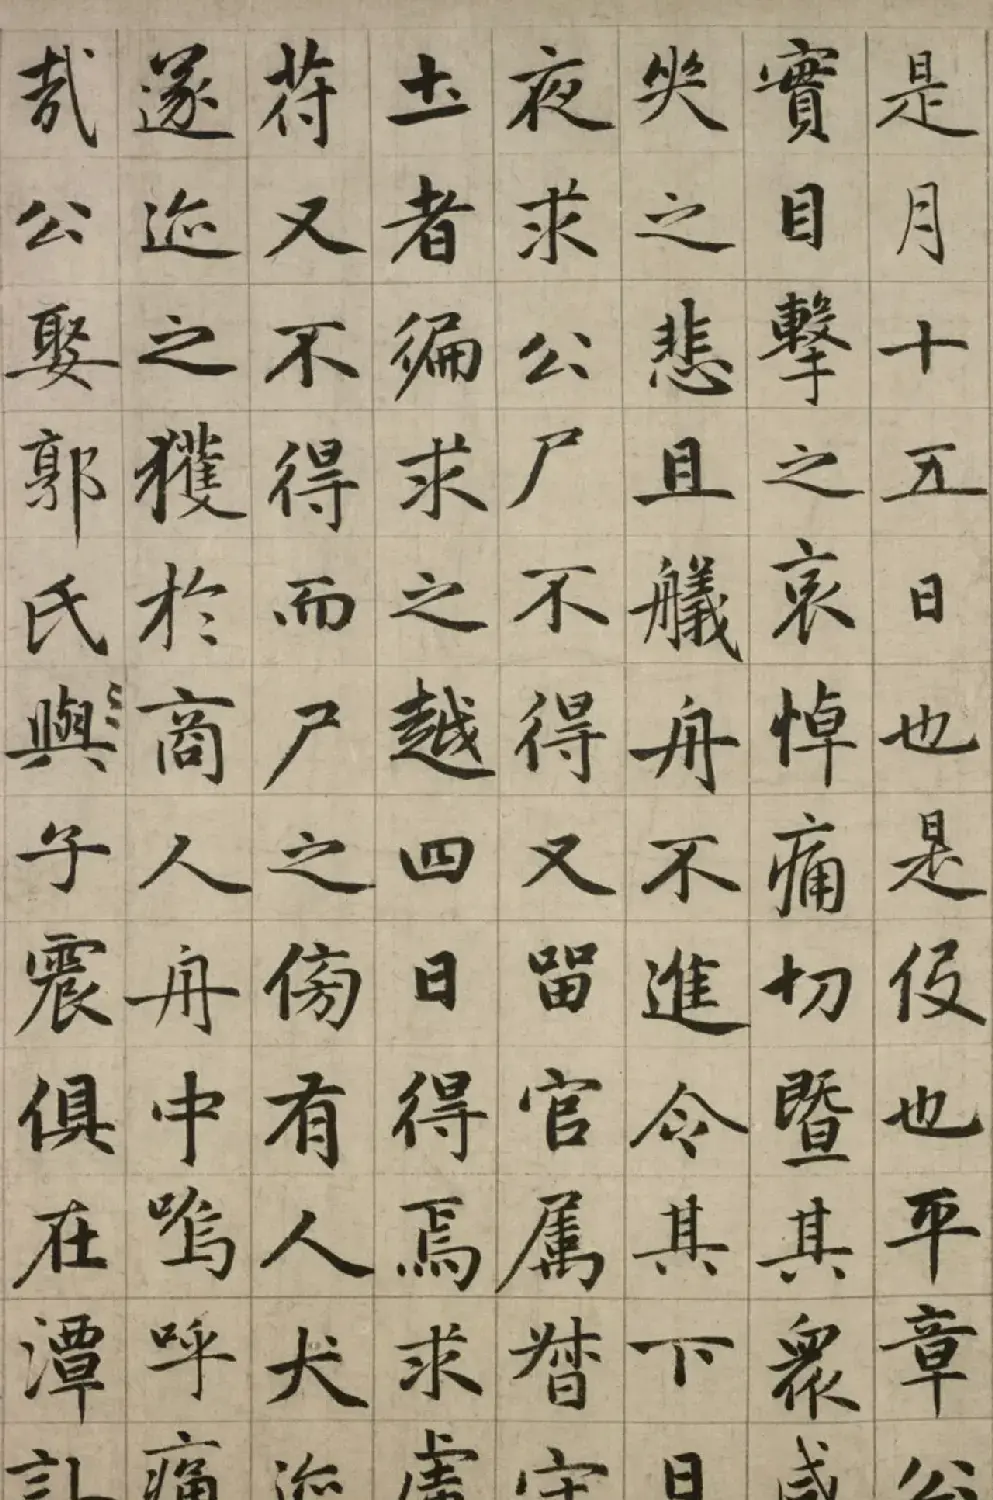 是月十五日也是役也平章公
實目擊之哀悼痛切暨其衆咸
哭之悲且艤舟不進令其下日
夜求公尸不得又留官属督守
土者徧求之越四日得焉求虜
苻又不得而尸之傍有人犬迹
遂迹之獲於商人舟中嗚呼痛
哉公娶郭氏與子震俱在潭訃